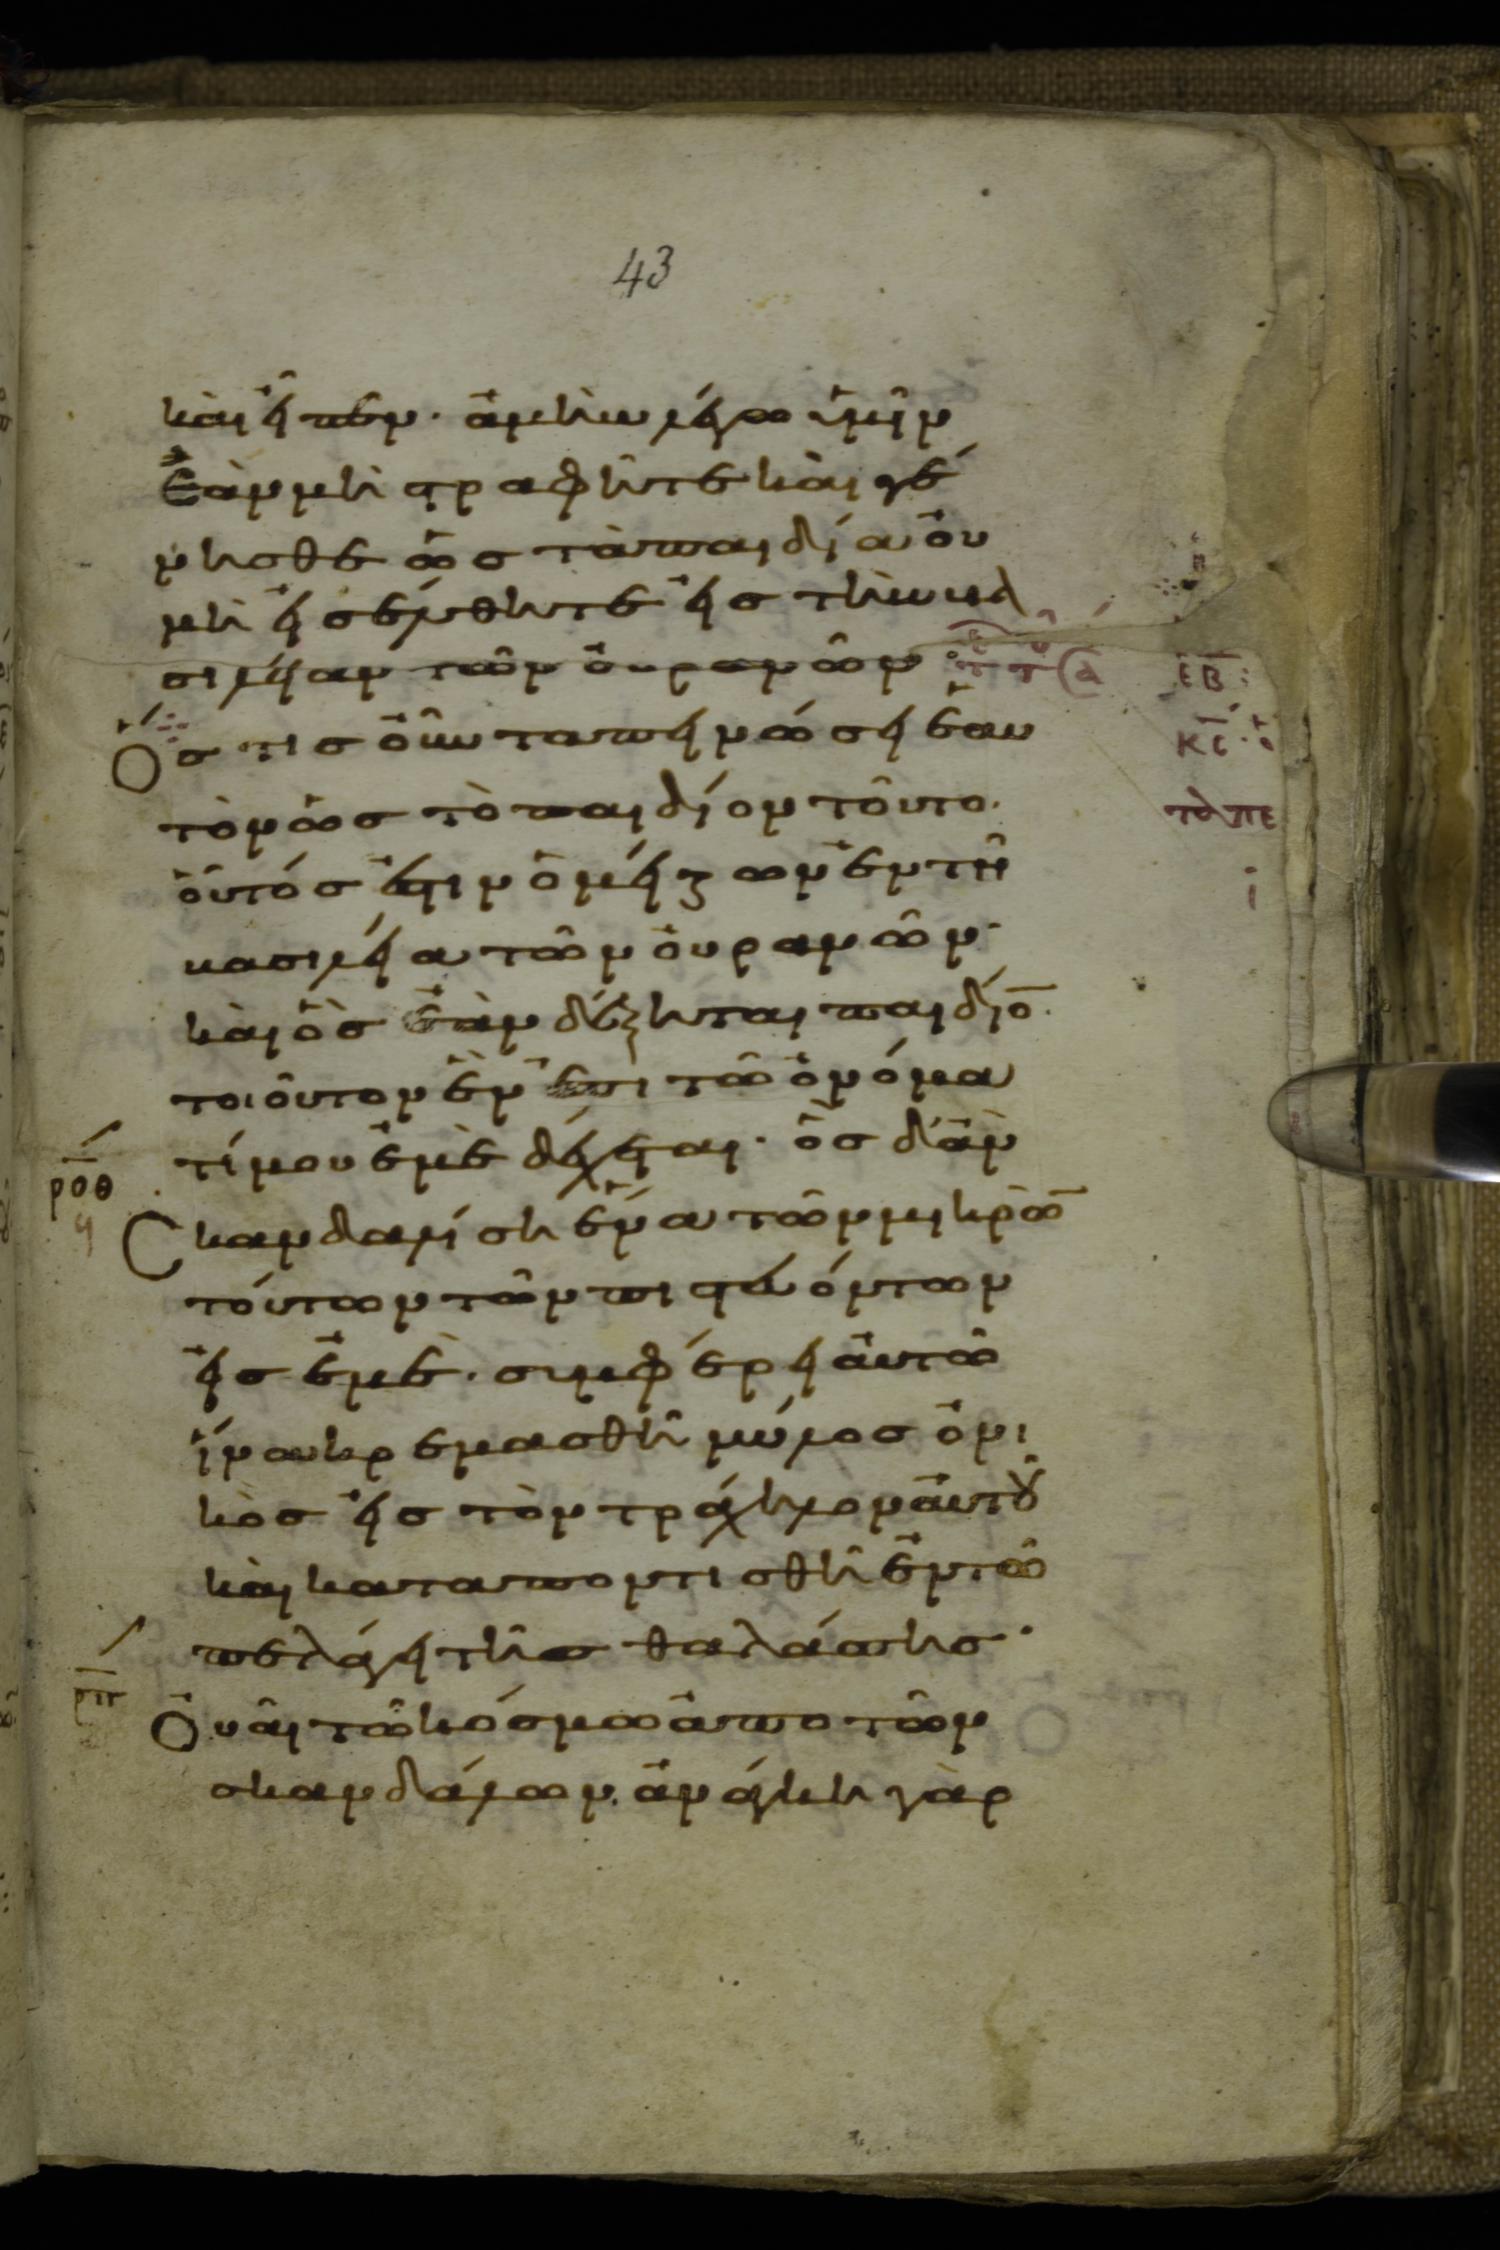 43
καὶ εἶπεν· ἀμὴν λέγω ὑμῖν
Ἐὰν μὴ στραφῆτε καὶ γέ
νησθε ὡς τὰ παιδία οὐ
μὴ εἰσέλθητε εἰς τὴν βα
σιλείαν τῶν οὐρανῶν
Ὅστις οὖν ταπεινώσει ἑαυ
τὸν ὡς τὸ παιδίον τοῦτο·
οὗτός ἐστιν ὁ μείζων ἐν τῇ
βασιλεία τῶν οὐρανῶν·
καὶ ὃς ἐὰν δέξηται παιδίο̅
τοιοῦτον ἓν ἐπι τῶ ὀνόμα
τί μου ἐμὲ δέχεται· ὃς δ' ἂν
ροθ
Σκανδαλίση ἕνα τῶν μικρῶ̅
τούτων τῶν πιστευόντων
εἰς ἐμέ· συμφέρει αὐτῶ
ἵνα κρεμασθῆ μύλος ὀνι
κὸς εἰς τὸν τράχηλον αὐτοῦ
καὶ καταποντισθῆ ἐν τῶ
πελάγει τῆς θαλάσσης·
ρπ
Οὐαὶ τῶ κόσμω ἀπο τῶν
σκανδάλων· ἀνάγκη γὰρ